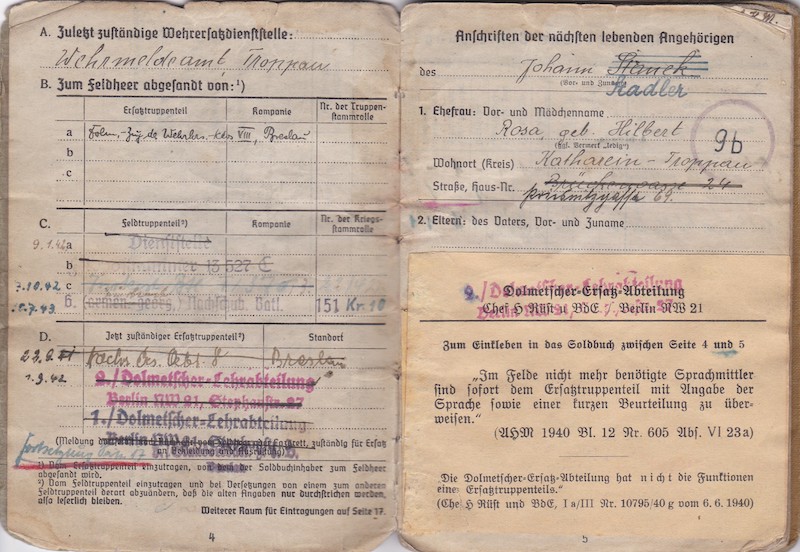 A. Zuletzt zuständige Wehrersatzdienststelle:
Wehrmeldeamt, Troppau
B. Zum Feldheer abgesandt von:¹)
Ersatztruppenteil
Kompanie
Nr. der Truppen-
stammrolle
a
VIII, Breslau
b
c
C.
Feldtruppenteil²)
Kompanie
Nr. der Kriegs-
stammrolle
a
Dienststelle
b
13 527 C
c
7.10.42
6.
Nachschub. Batl.
151 Kr. 10
D.
Jetzt zuständiger Ersatztruppenteil²)
Standort
Breslau
1.9.42
2./Dolmetscher-Lehrabteilung
Berlin NW 21, Stephanstr. 27
1./Dolmetscher-Lehrabteilung
(Meldung
zuständig für Ersatz
an Bekleidung und Ausrüstung)
Fortsetzung Seite 17
¹) Vom Ersatztruppenteil einzutragen, von dem der Soldbuchinhaber zum Feldheer
abgesandt wird.
²) Vom Feldtruppenteil einzutragen und bei Versetzungen von einem zum anderen
Feldtruppenteil derart abzuändern, daß die alten Angaben nur durchstrichen werden,
also leserlich bleiben.
Weiterer Raum für Eintragungen auf Seite 17.
4
Anschriften der nächsten lebenden Angehörigen
des
Johann Stanek
(Vor- und Zuname)
Stadler
1. Ehefrau: Vor- und Mädchenname
Rosa, geb. Hilbert
(ggf. Vermerk „ledig")
9b
Wohnort (Kreis)
Katharein-Troppau
Straße, Haus-Nr.
24
69.
2. Eltern: des Vaters, Vor- und Zuname
2./Dolmetscher-Lehrabteilung
Dolmetscher-Ersatz-Abteilung
Chef H Rüst u BdE, Berlin NW 21
Zum Einkleben in das Soldbuch zwischen Seite 4 und 5
„Im Felde nicht mehr benötigte Sprachmittler
sind sofort dem Ersatztruppenteil mit Angabe der
Sprache sowie einer kurzen Beurteilung zu über-
weisen."
(AHM 1940 Bl. 12 Nr. 605 Abs. VI 23a)
„Die Dolmetscher-Ersatz-Abteilung hat nicht die Funktionen
eines Ersatztruppenteils."
(Chef H Rüst und BdE, Ia/III Nr. 10795/40 g vom 6.6.1940)
5